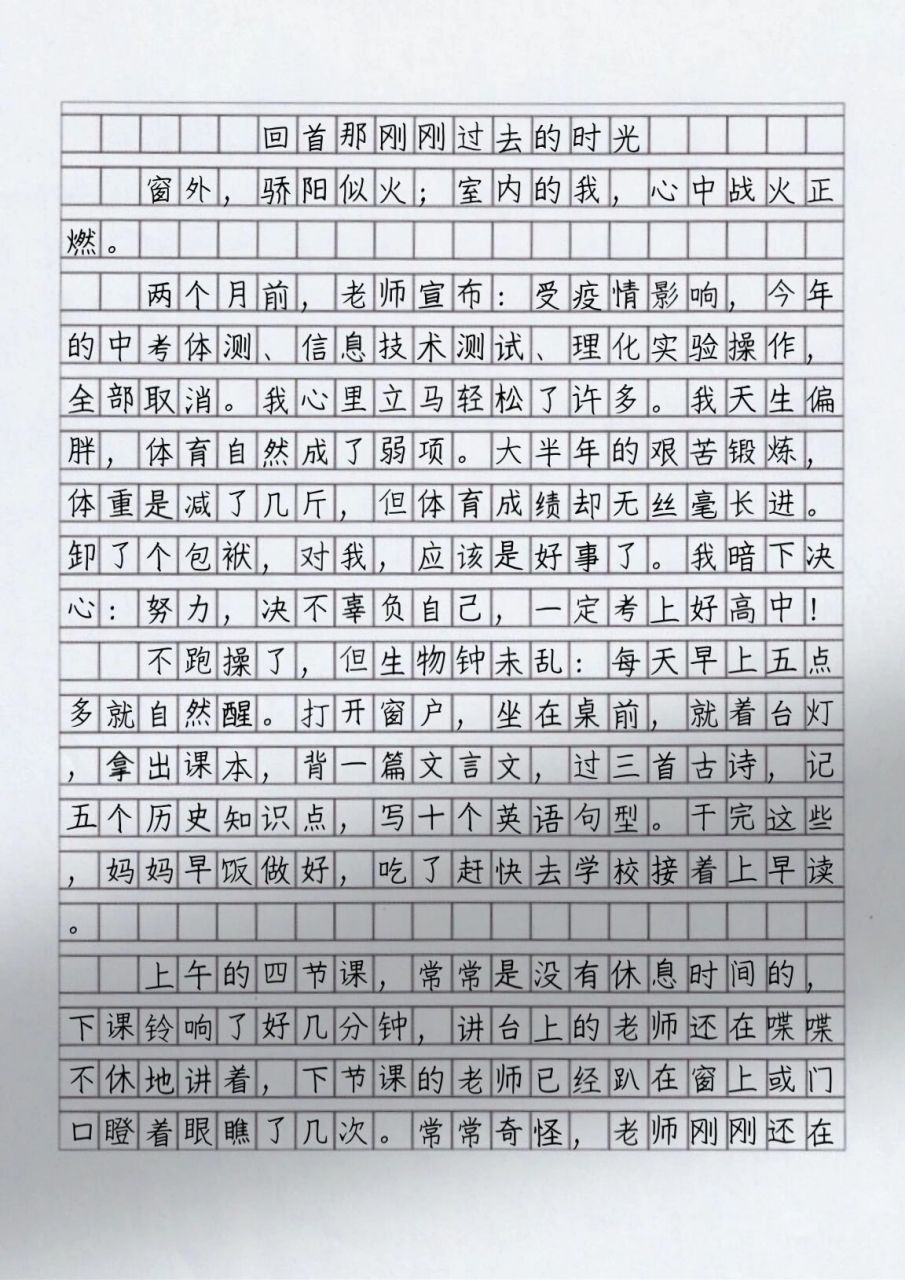 回首那刚刚过去的时光
窗外，骄阳似火；室内的我，心中战火正
燃。
两个月前，老师宣布：受疫情影响，今年
的中考体测、信息技术测试、理化实验操作，
全部取消。我心里立马轻松了许多。我天生偏
胖，体育自然成了弱项。大半年的艰苦锻炼，
体重是减了几斤，但体育成绩却无丝毫长进。
卸了个包袱，对我，应该是好事了。我暗下决
心：努力，决不辜负自己，一定考上好高中！
不跑操了，但生物钟未乱：每天早上五点
多就自然醒。打开窗户，坐在桌前，就着台灯
，拿出课本，背一篇文言文，过三首古诗，记
五个历史知识点，写十个英语句型。干完这些
，妈妈早饭做好，吃了赶快去学校接着上早读
。
上午的四节课，常常是没有休息时间的，
下课铃响了好几分钟，讲台上的老师还在喋喋
不休地讲着，下节课的老师已经趴在窗上或门
口瞪着眼瞧了几次。常常奇怪，老师刚刚还在